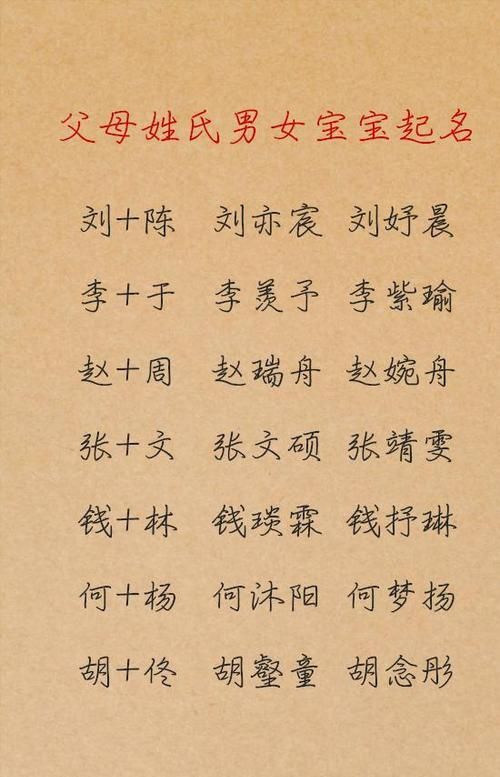 父母姓氏男女宝宝起名
刘+陈 刘亦宸 刘妤晨
李+于 李羡予 李紫瑜
赵+周 赵瑞舟 赵婉舟
张+文 张文硕 张靖雯
钱+林 钱琰霖 钱抒琳
何+杨 何沐阳 何梦扬
胡+佟 胡壑童 胡念彤